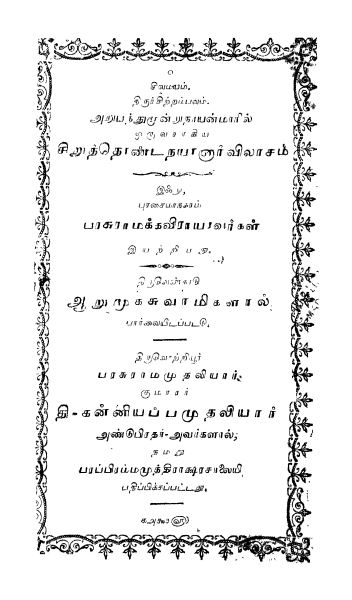 சிவமயம்.
திருச்சிற்றம்பலம்.
அறுபத்துமூன்றுநாயன்மாரில்
ஒருவராகிய
சிறுத்தொண்டநயனார்விலாசம்
இஃது,
புரசைமாநகரம்
பரசுராமக்கவிராயரவர்கள்
இயற்றியது.
திருவெண்காடு
ஆறுமுகசுவாமிகளால்
பார்வையிடப்பட்டு
திருவொற்றியூர்
பரசுராமமுதலியார்
குமாரர்
தி-கன்னியப்பமுதலியார்
அண்டுபிரதர்-அவர்களால்,
தமது
பரப்பிரம்மமுத்திராக்ஷரசாலையி
பதிப்பிக்கப்பட்டது.